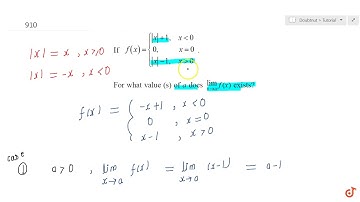 910
Doubtnut - Tutorial
|x| = x , x≥0
|x| = -x , x<0
If f(x) = { |x|+1, x < 0
0, x = 0 .
|x|-1, x > 0
For what value (s) of a does lim f(x) exists?
f(x) = { -x+1 , x < 0
0 , x = 0
x-1 , x > 0
case
① a>0 , lim x→a f(x) = lim x→a (x-1) = a-1